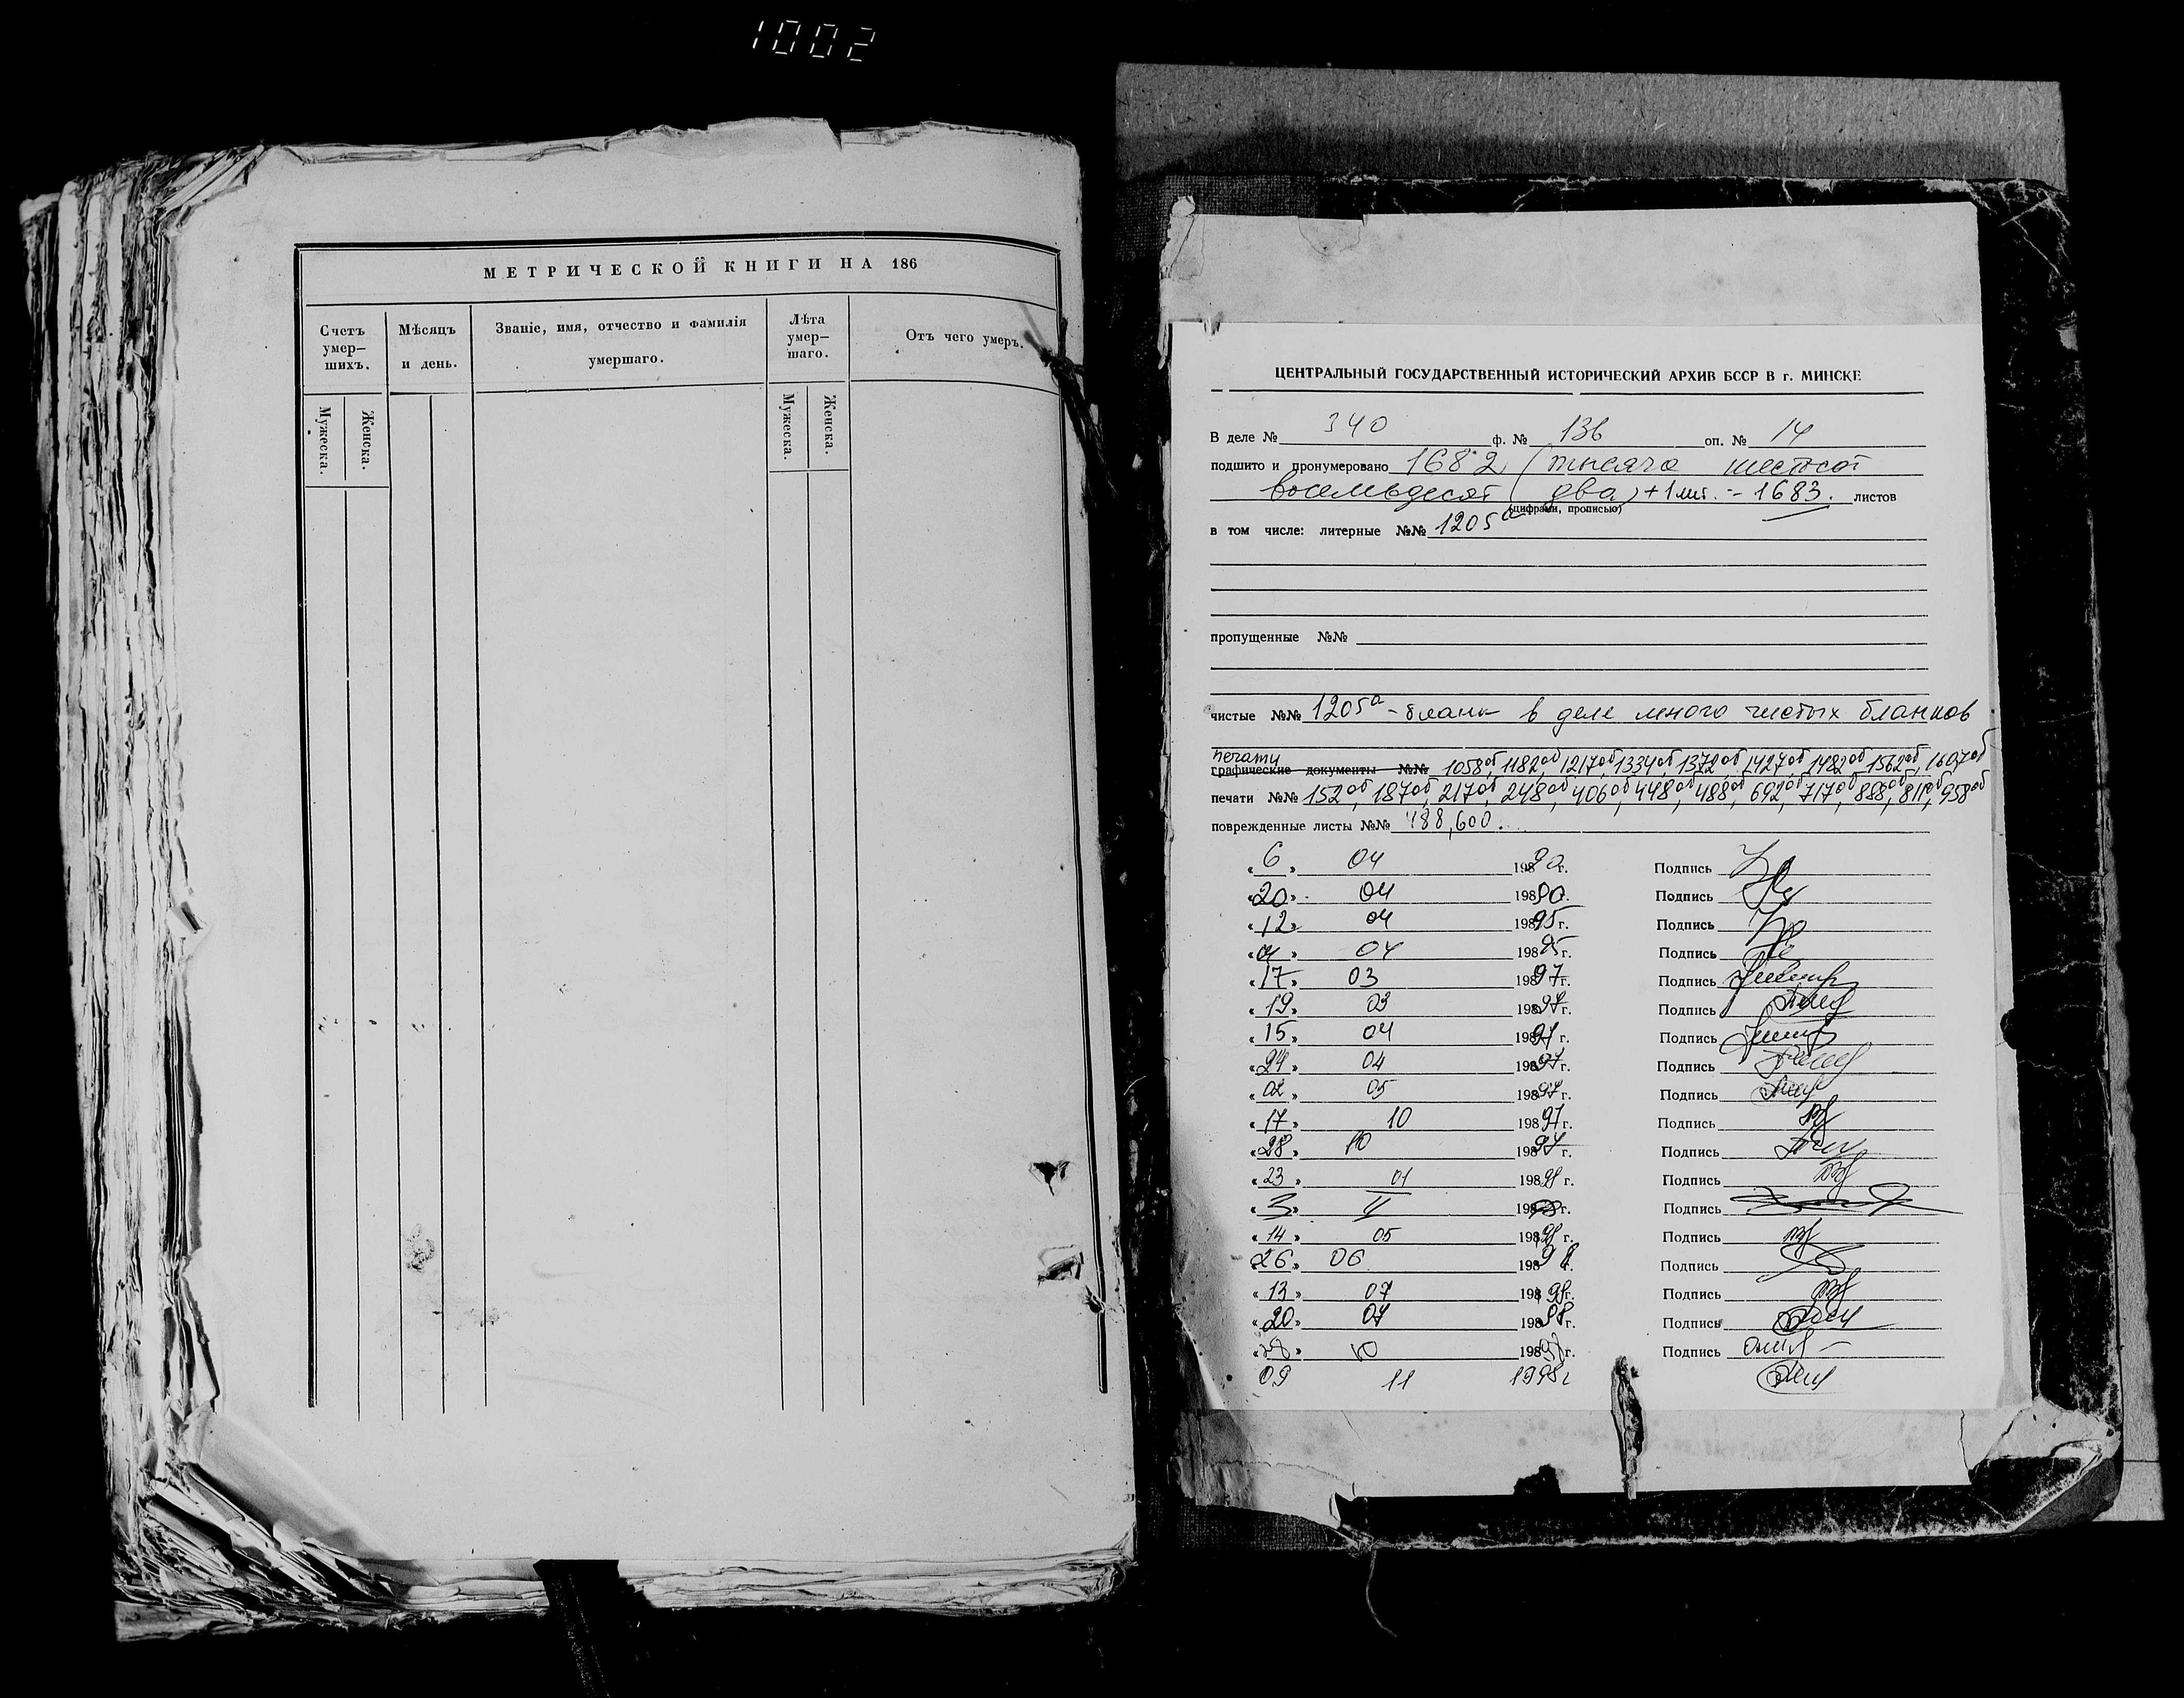 1002
МЕТРИЧЕСКОЙ КНИГИ НА 186
Счетъ умер-шихъ.
Мѣсяцъ и день.
Званіе, имя, отчество и фамилія умершаго.
Лѣта умер-шаго.
Отъ чего умеръ.
Мужеска.
Женска.
Мужеска.
Женска.
ЦЕНТРАЛЬНЫЙ ГОСУДАРСТВЕННЫЙ ИСТОРИЧЕСКИЙ АРХИВ БССР В г. МИНСКЕ
В деле № 340 ф. № 136 оп. № 14
подшито и пронумеровано 1682 (тысяча шестсот
восемьдесят (два) + 1 лит. = 1683. листов
(цифрами, прописью)
в том числе: литерные №№ 1205а
пропущенные №№
чистые №№ 1205а - бланк в деле много чистых бланков
печати
графические документы №№ 1058об, 1182об, 1217об, 1334об, 1372об, 1427об, 1482об, 1562об, 1607об
печати №№ 152об, 187об, 217об, 248об, 406об, 448об, 488об, 692об, 717об, 888об, 811об, 958об
поврежденные листы №№ 488, 600.
« 6 » 04 19890 г. Подпись
« 20 » 04 19890 г. Подпись
« 12 » 04 19895 г. Подпись
« 04 » 04 19895 г. Подпись
« 17 » 03 19897 г. Подпись
« 19 » 03 19897 г. Подпись
« 15 » 04 19897 г. Подпись
« 24 » 04 19897 г. Подпись
« 02 » 05 19897 г. Подпись
« 17 » 10 19897 г. Подпись
« 28 » 10 19897 г. Подпись
« 23 » 01 19898 г. Подпись
« 3 » II 198 г. Подпись
« 14 » 05 19898 г. Подпись
« 26 » 06 19898 г. Подпись
« 13 » 07 19898 г. Подпись
« 20 » 07 19898 г. Подпись
« » 10 19898 г. Подпись
09 11 1998 г